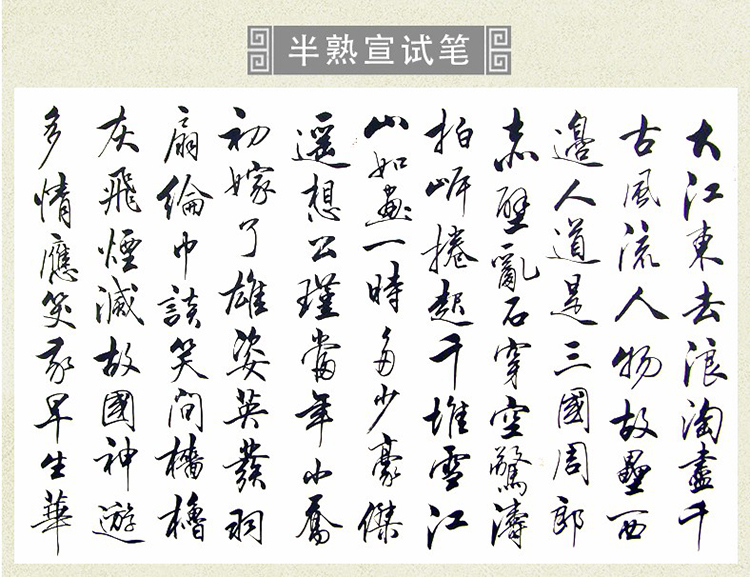 半熟宣试笔
大江東去浪淘盡千
古風流人物故壘西
邊人道是三國周郎
赤壁亂石穿空驚濤
拍岸捲起千堆雪江
山如畫一時多少豪傑
遥想公瑾當年小喬
初嫁了雄姿英發羽
扇綸巾談笑間檣櫓
灰飛煙滅故國神遊
多情應笑我早生華